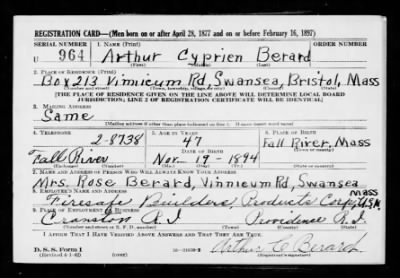 REGISTRATION CARD—(Men born on or after April 28, 1877 and on or before February 16, 1897)
SERIAL NUMBER 1. NAME (Print) ORDER NUMBER
U 964 Arthur Cyprien Berard
(First) (Middle) (Last)
2. PLACE OF RESIDENCE (Print)
Box 213 Vinnicum Rd, Swansea, Bristol, Mass
(Number and street) (Town, township, village, or city) (County) (State)
[THE PLACE OF RESIDENCE GIVEN ON THE LINE ABOVE WILL DETERMINE LOCAL BOARD
JURISDICTION; LINE 2 OF REGISTRATION CERTIFICATE WILL BE IDENTICAL]
3. MAILING ADDRESS
Same
[Mailing address if other than place indicated on line 2. If same insert word same]
4. TELEPHONE 5. AGE IN YEARS 6. PLACE OF BIRTH
2-8738 47 Fall River, Mass
DATE OF BIRTH
Fall River Nov. 19 - 1894
(Exchange) (Number) (Mo.) (Day) (Yr.) (State or country)
7. NAME AND ADDRESS OF PERSON WHO WILL ALWAYS KNOW YOUR ADDRESS
Mrs. Rose Berard, Vinnicum Rd, Swansea Mass
8. EMPLOYER'S NAME AND ADDRESS
Firesafe Builders Products Corp, U.S.A.
9. PLACE OF EMPLOYMENT OR BUSINESS
Cranston R.I Providence R.I
(Number and street or R. F. D. number) (Town) (County) (State)
I AFFIRM THAT I HAVE VERIFIED ABOVE ANSWERS AND THAT THEY ARE TRUE.
D. S. S. Form 1
(Revised 4-1-42) (over)
Arthur C Berard